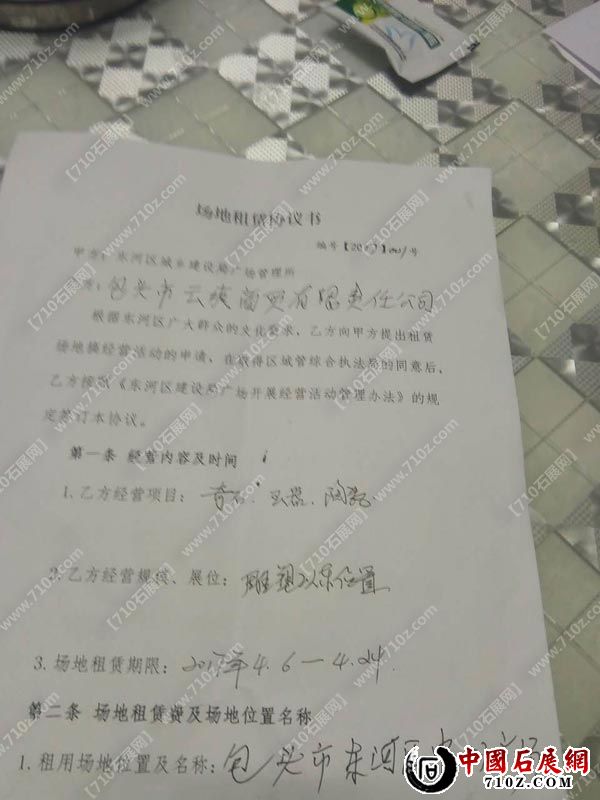 场地租赁协议书
编号【2017】001号
甲方：东河区城乡建设局广场管理所
方：包头市云族商贸有限责任公司
根据东河区广大群众的文化要求，乙方向甲方提出租赁
场地搞经营活动的申请，在取得区城管综合执法局的同意后，
乙方按照《东河区建设局广场开展经营活动管理办法》的规
定签订本协议。
第一条 经营内容及时间
1.乙方经营项目：奇石.玉器.陶瓷
2.乙方经营规模、展位：雕塑以东位置
3.场地租赁期限：2017年4.6—4.24.
第二条 场地租赁费及场地位置名称
1.租用场地位置及名称：包头市东河区
中国石展网
www.710z.com
【710石展网】
www.710z.com